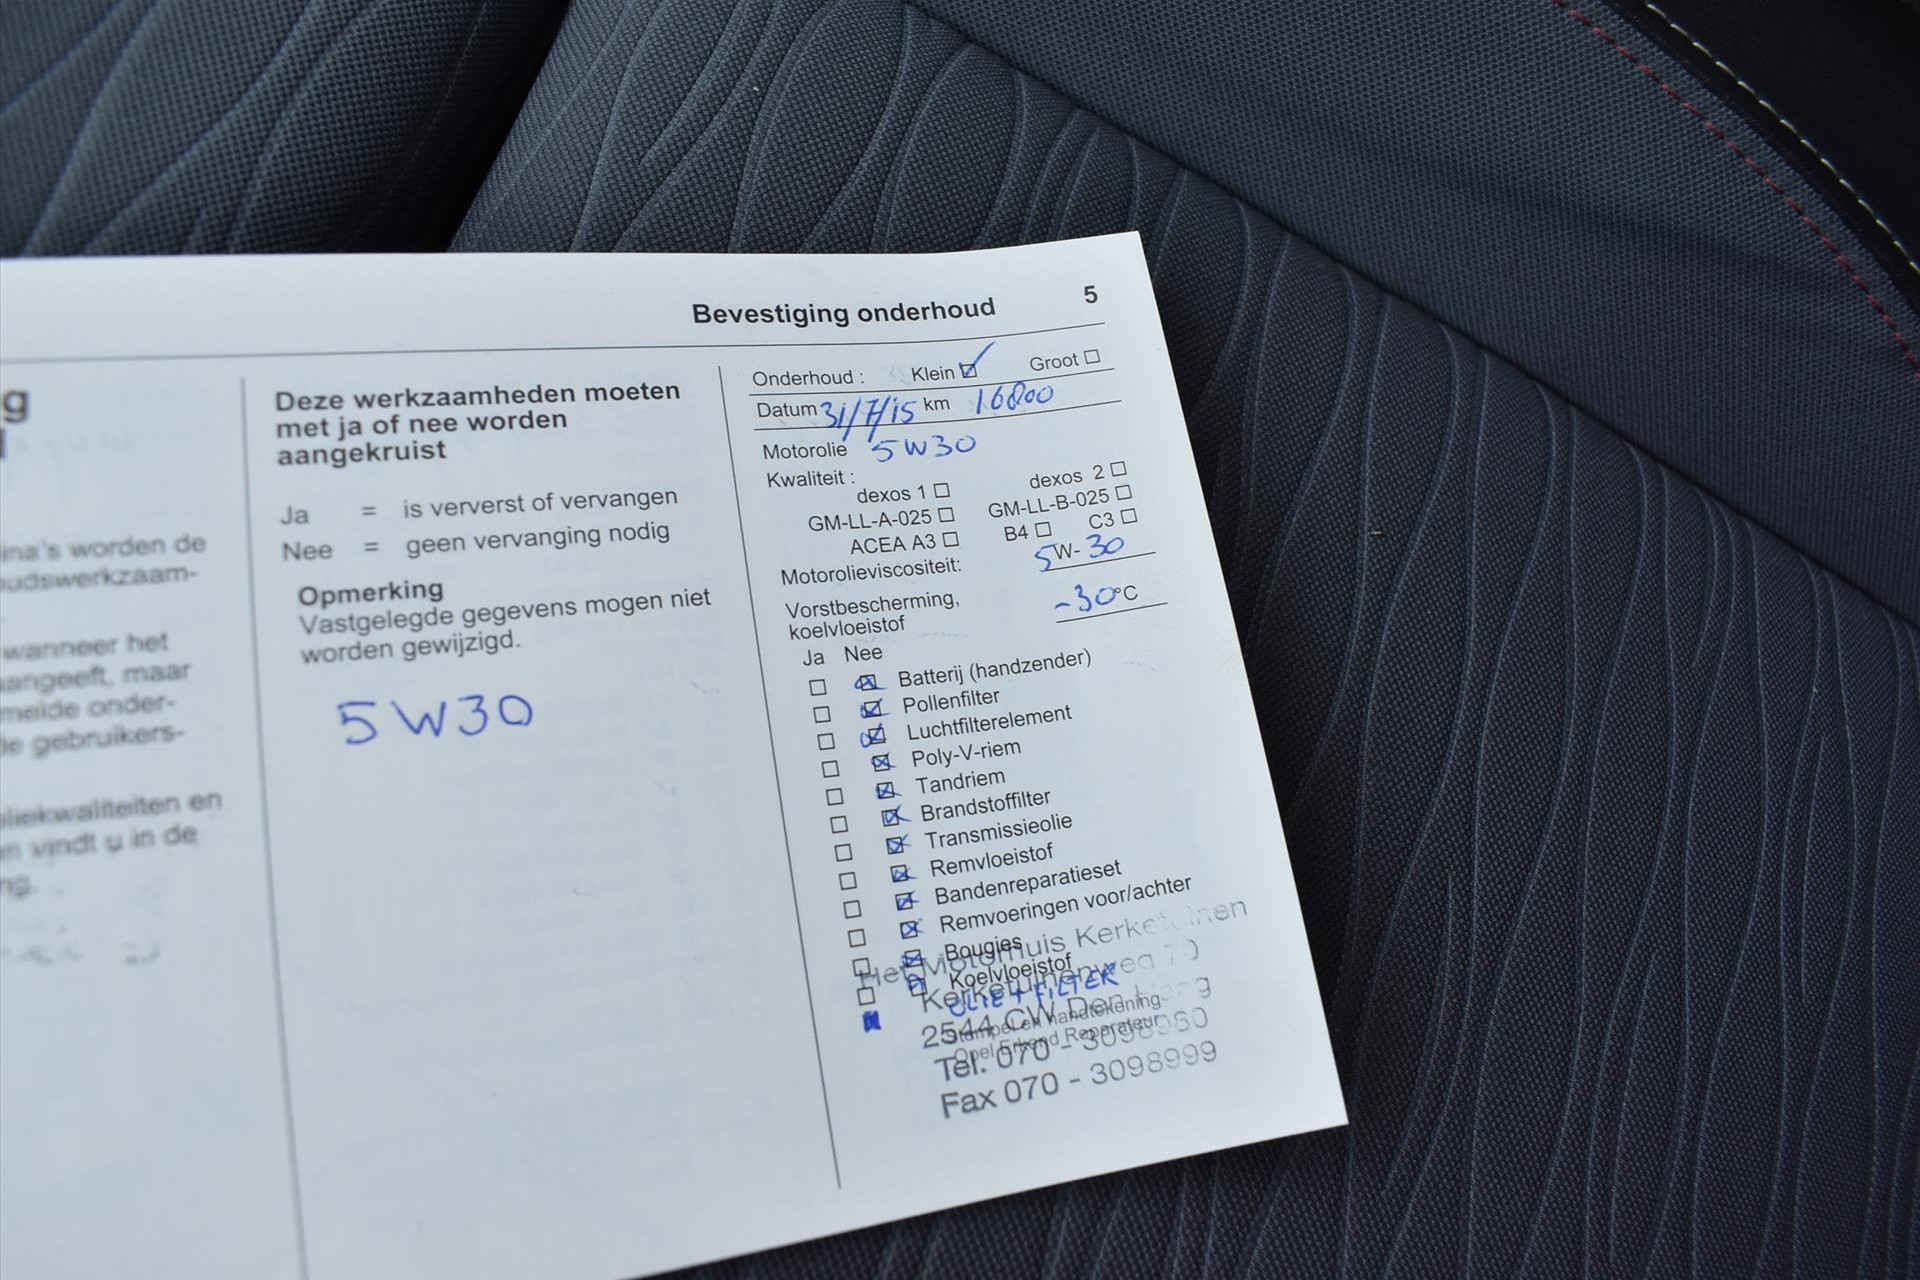 Bevestiging onderhoud 5
g
ina's worden de
oudswerkzaam-
wanneer het
aangeeft, maar
melde onder-
de gebruikers-
oliekwaliteiten en
en vindt u in de
ng.
Deze werkzaamheden moeten
met ja of nee worden
aangekruist
Ja = is ververst of vervangen
Nee = geen vervanging nodig
Opmerking
Vastgelegde gegevens mogen niet
worden gewijzigd.
5W30
Onderhoud : Klein Groot
Datum 31/7/15 km 16800
Motorolie 5W30
Kwaliteit :
dexos 1 dexos 2
GM-LL-A-025 GM-LL-B-025
ACEA A3 B4 C3
Motorolieviscositeit: 5W-30
Vorstbescherming,
koelvloeistof -30°C
Ja Nee
Batterij (handzender)
Pollenfilter
Luchtfilterelement
Poly-V-riem
Tandriem
Brandstoffilter
Transmissieolie
Remvloeistof
Bandenreparatieset
Remvoeringen voor/achter
Bougies
Koelvloeistof
OLIE + FILTER
Stempel en handtekening
Opel Erkend Reparateur
Het Motorhuis Kerketuinen
Kerketuinenweg 70
2544 CW Den Haag
Tel. 070 - 3098960
Fax 070 - 3098999